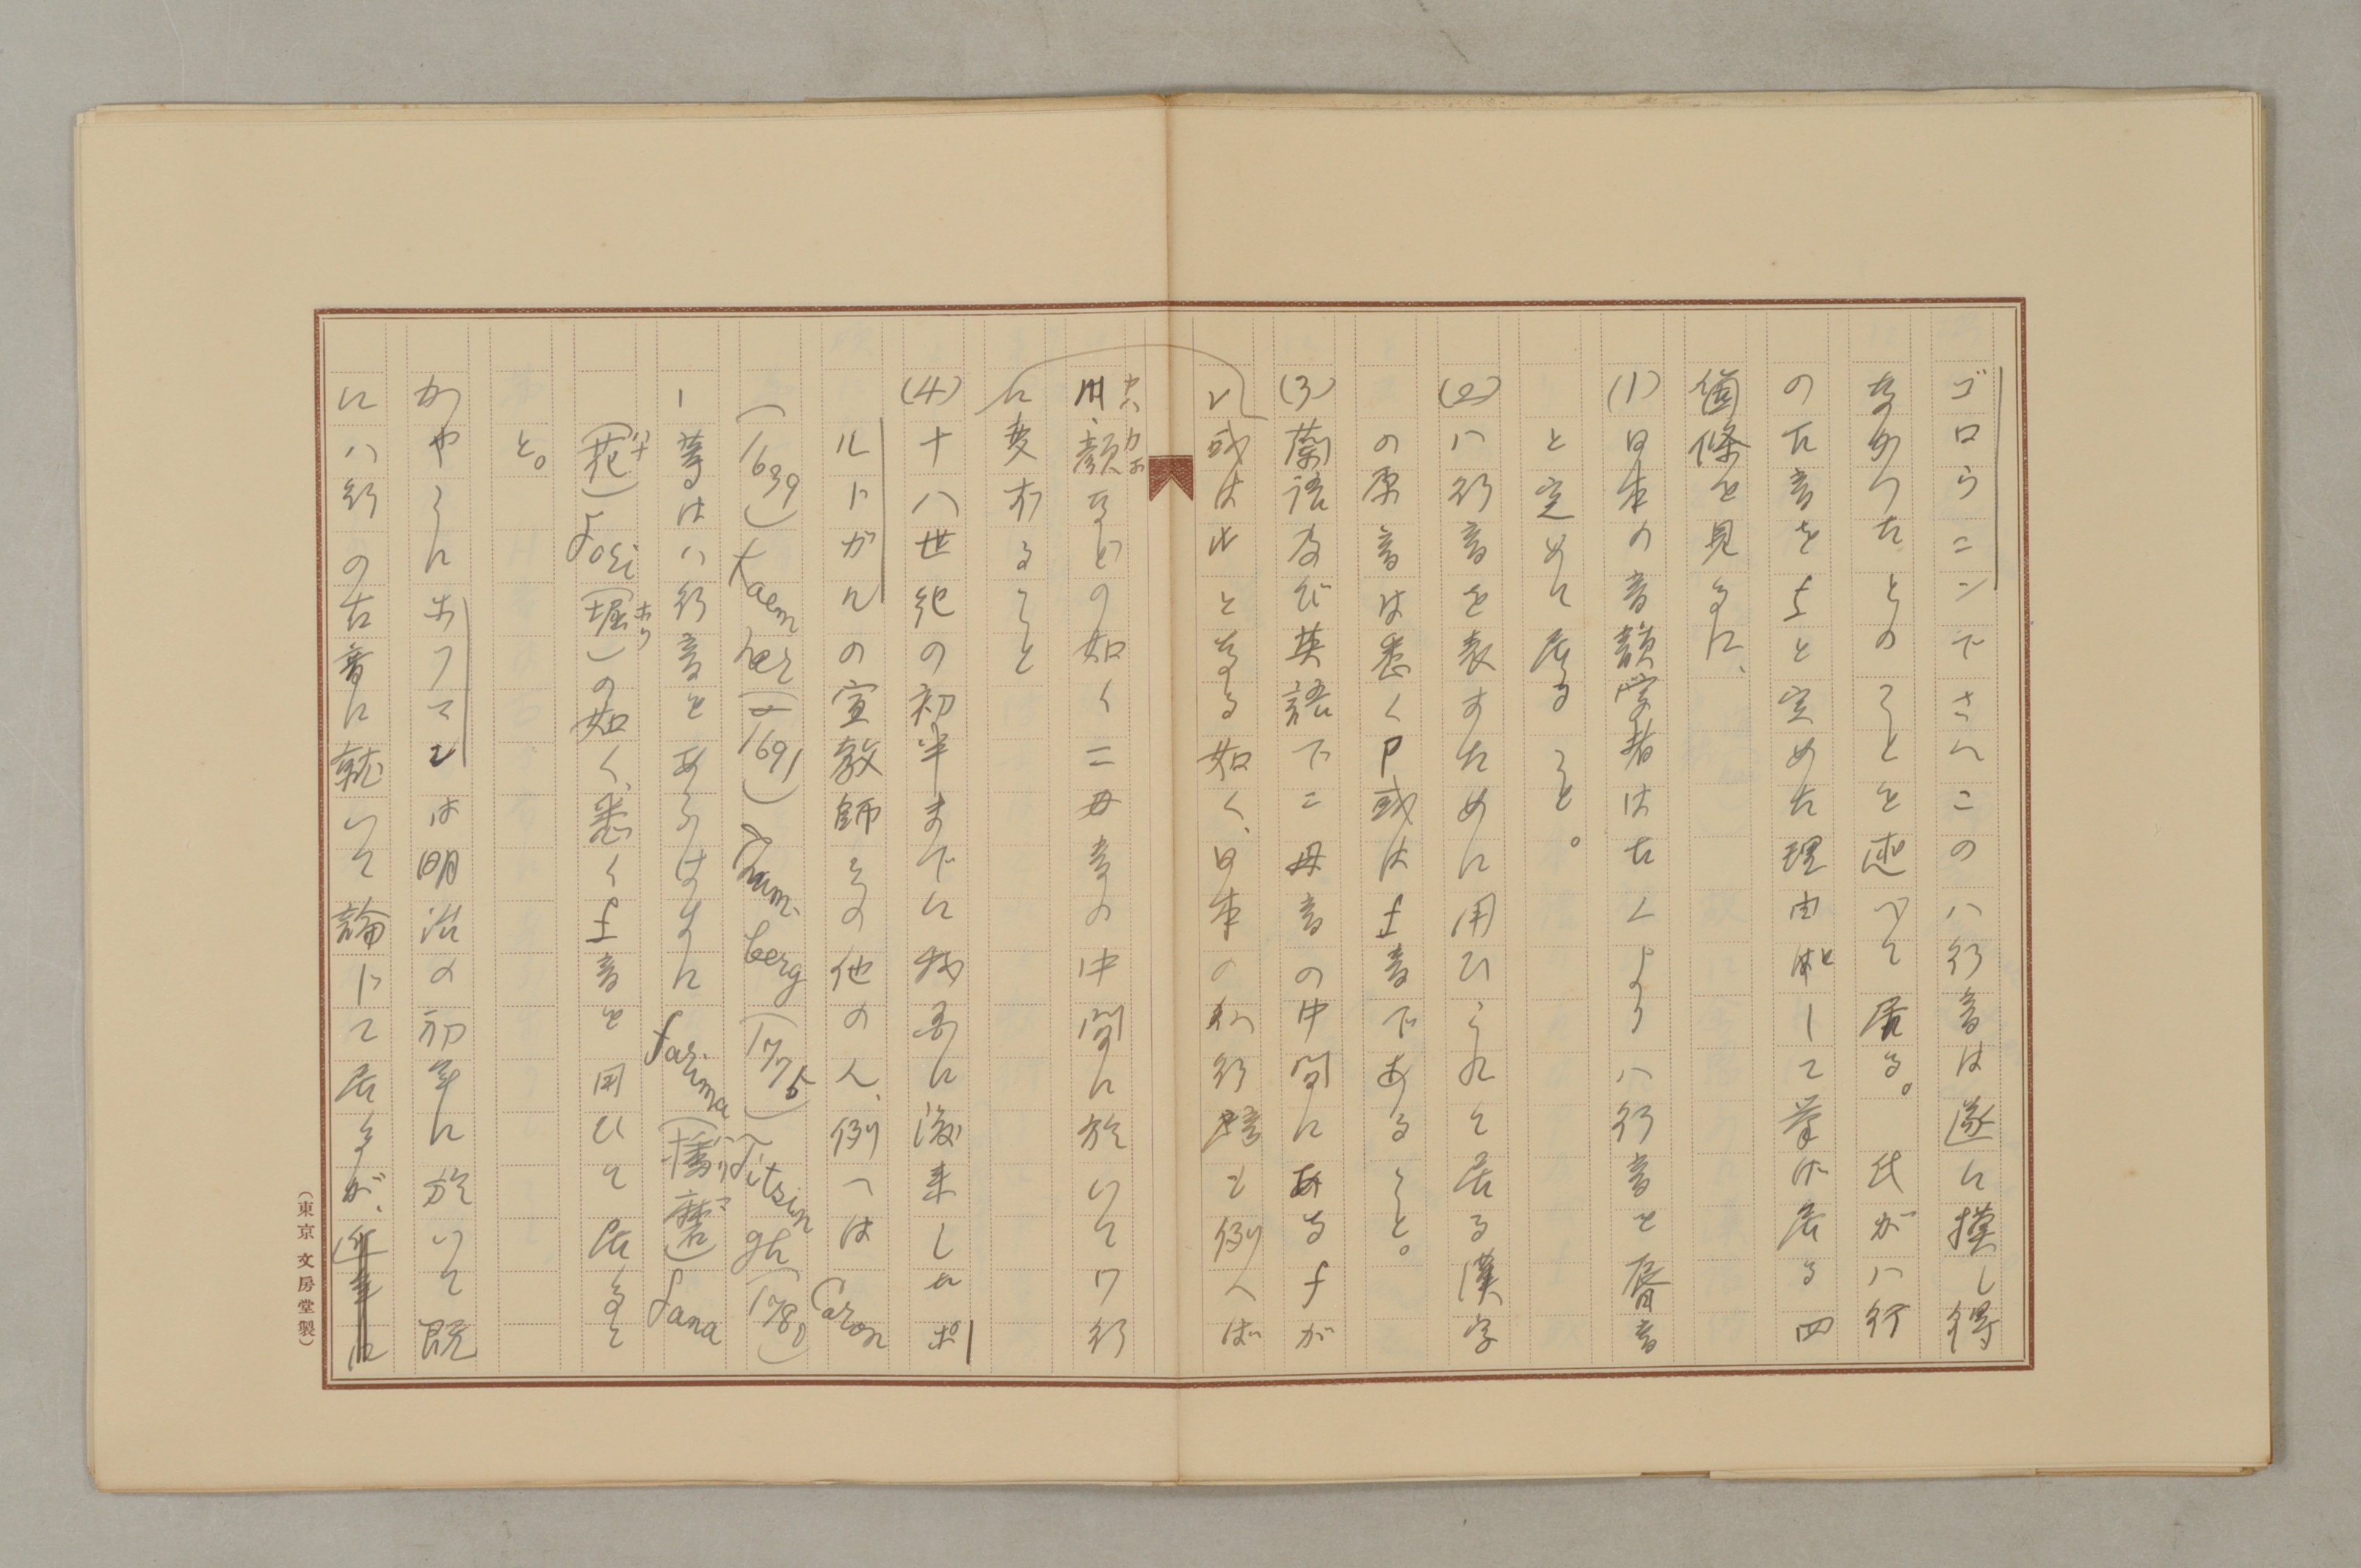 ゴロウニンでさへこのハ行音は遂に摸し得
なかつたとのことを述べて居る。氏がハ行
の古音をfと定めた理由として挙げ居る四
箇條を見るに、
(1)日本の音韻学者は古くよりハ行音を唇音
と定めて居ること。
(2)ハ行音を表すために用ひられて居る漢字
の原音は悉くp或はf音であること。
(3)蘭語及び英語で二母音の中間にあるfが
v或はbとなる如く、日本のハ行音も例へば
川、顔などの如く二母音の中間に於いてワ行
に変ずること
(4)十八世紀の初半までに我国に渡来したポ
ルトガルの宣教師その他の人、例へば Caron
(1639) Kaempfer (1691) Thumberg (1775) Titsingh (1780)
等はハ行音をあらはすに farima (播磨) fana
(花) fori (堀)の如く、悉くf音を用ひて居るこ
と。
かやうにホフマンは明治の初年に於いて既
にハ行の古音に就いて論じて居るが、
(東京 文房堂製)